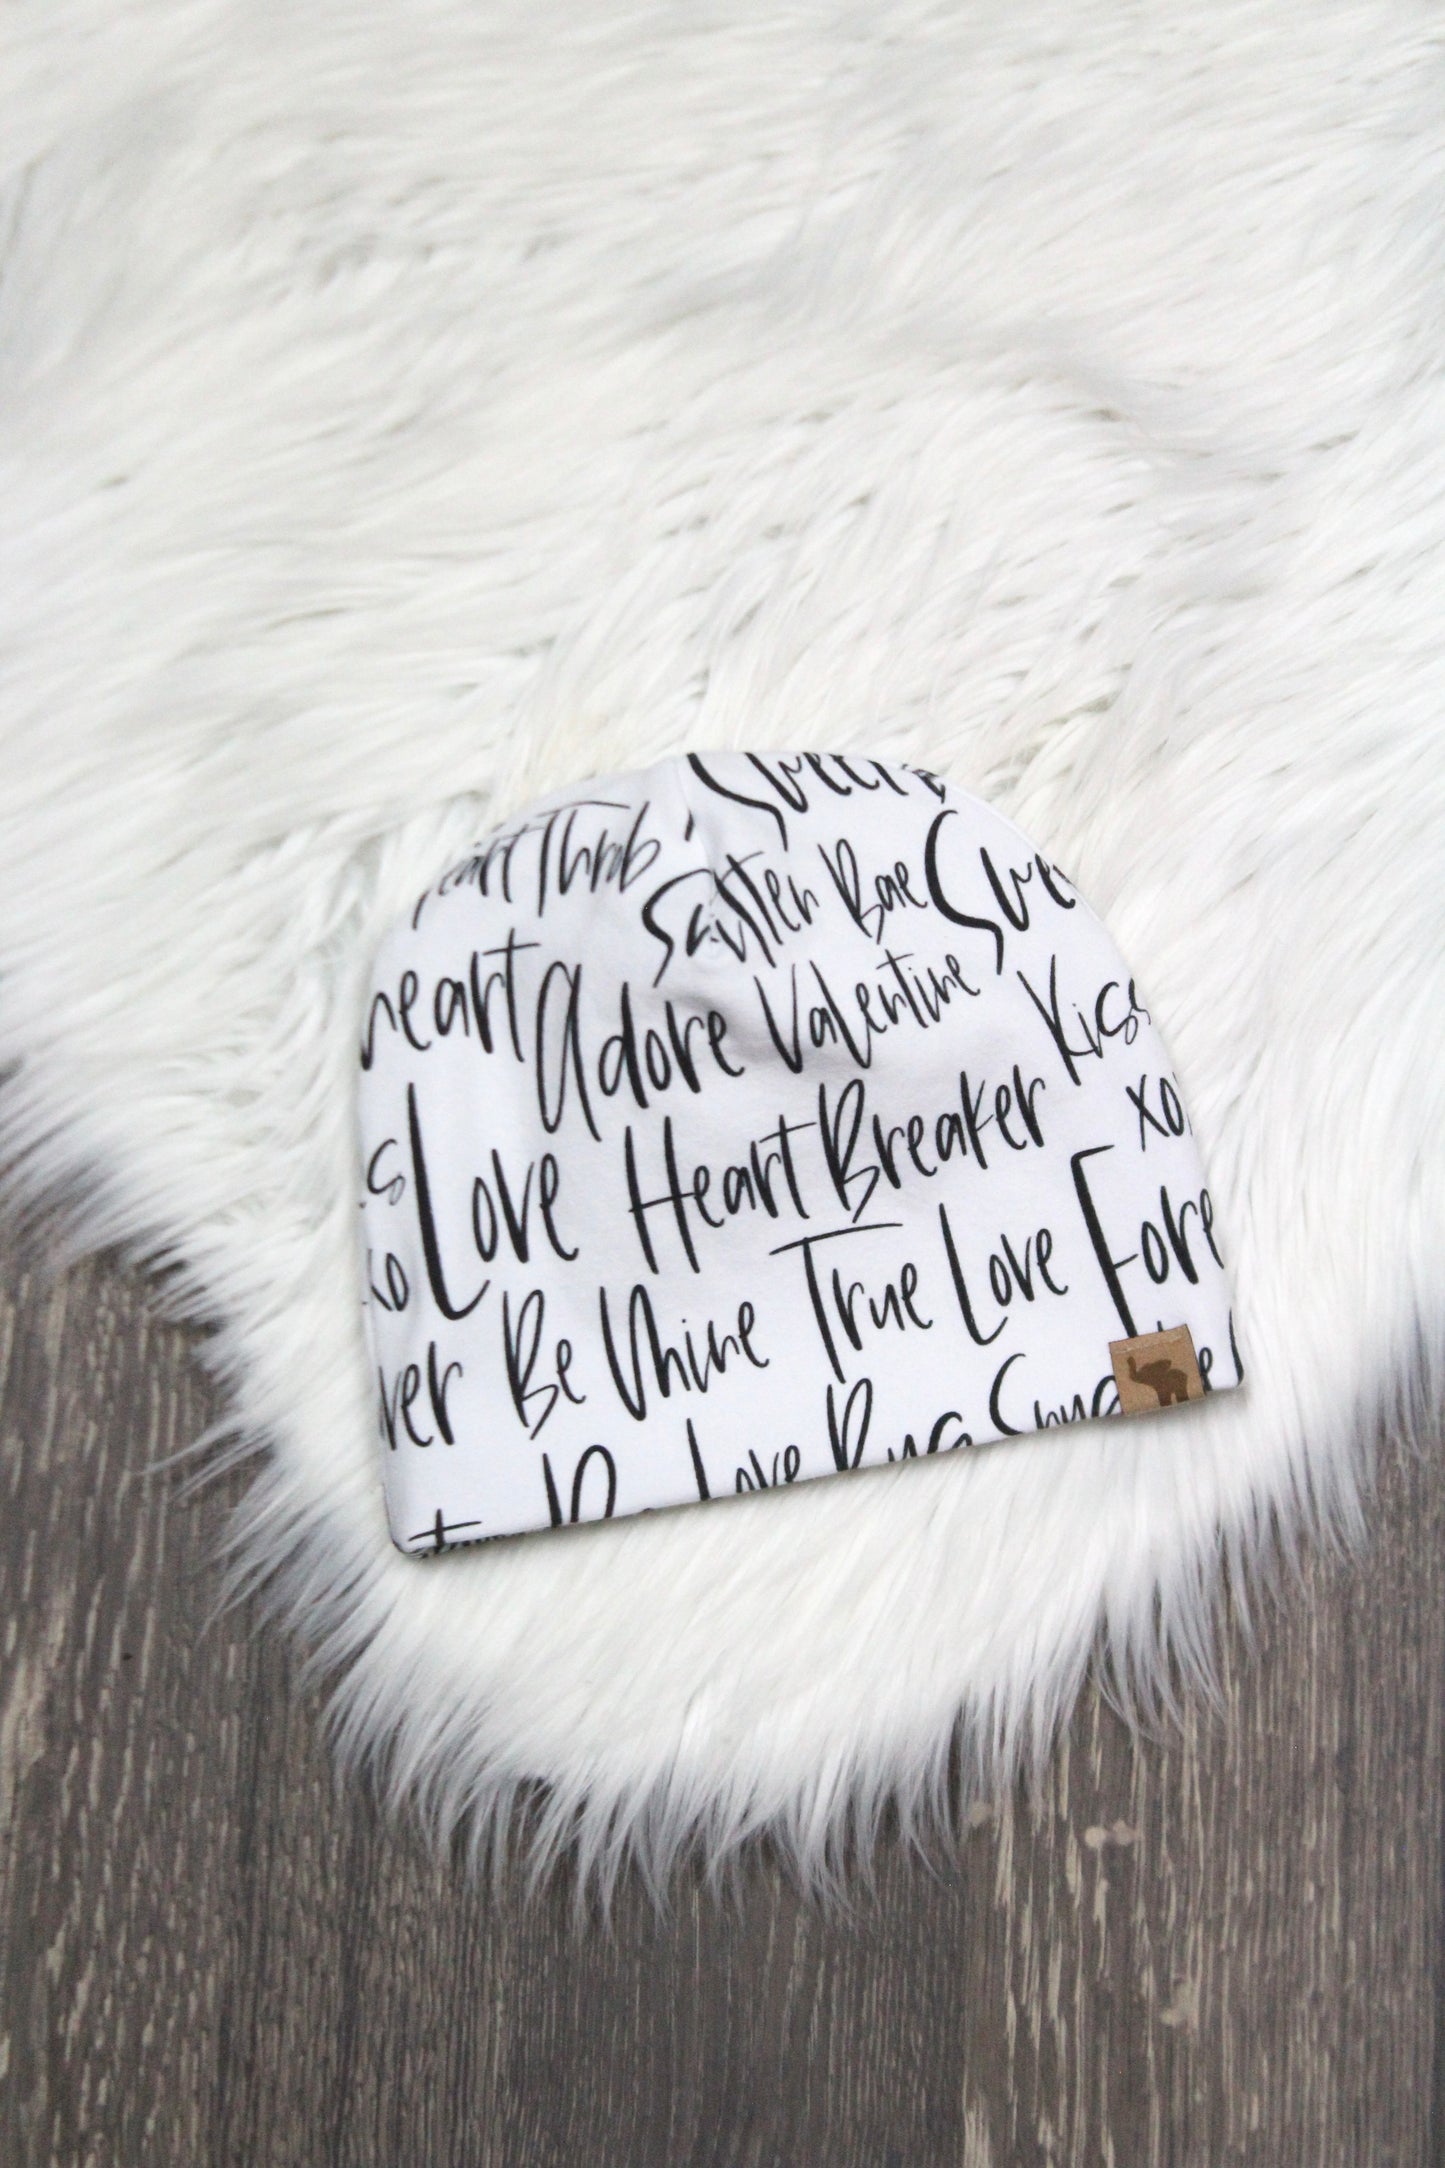 Sweet
Heart Throb
Bae Swe
heart Adore Valentine Kiss
Love Heart Breaker xo
xo True Love Fore
ver Be Mine
Love Bug Snug